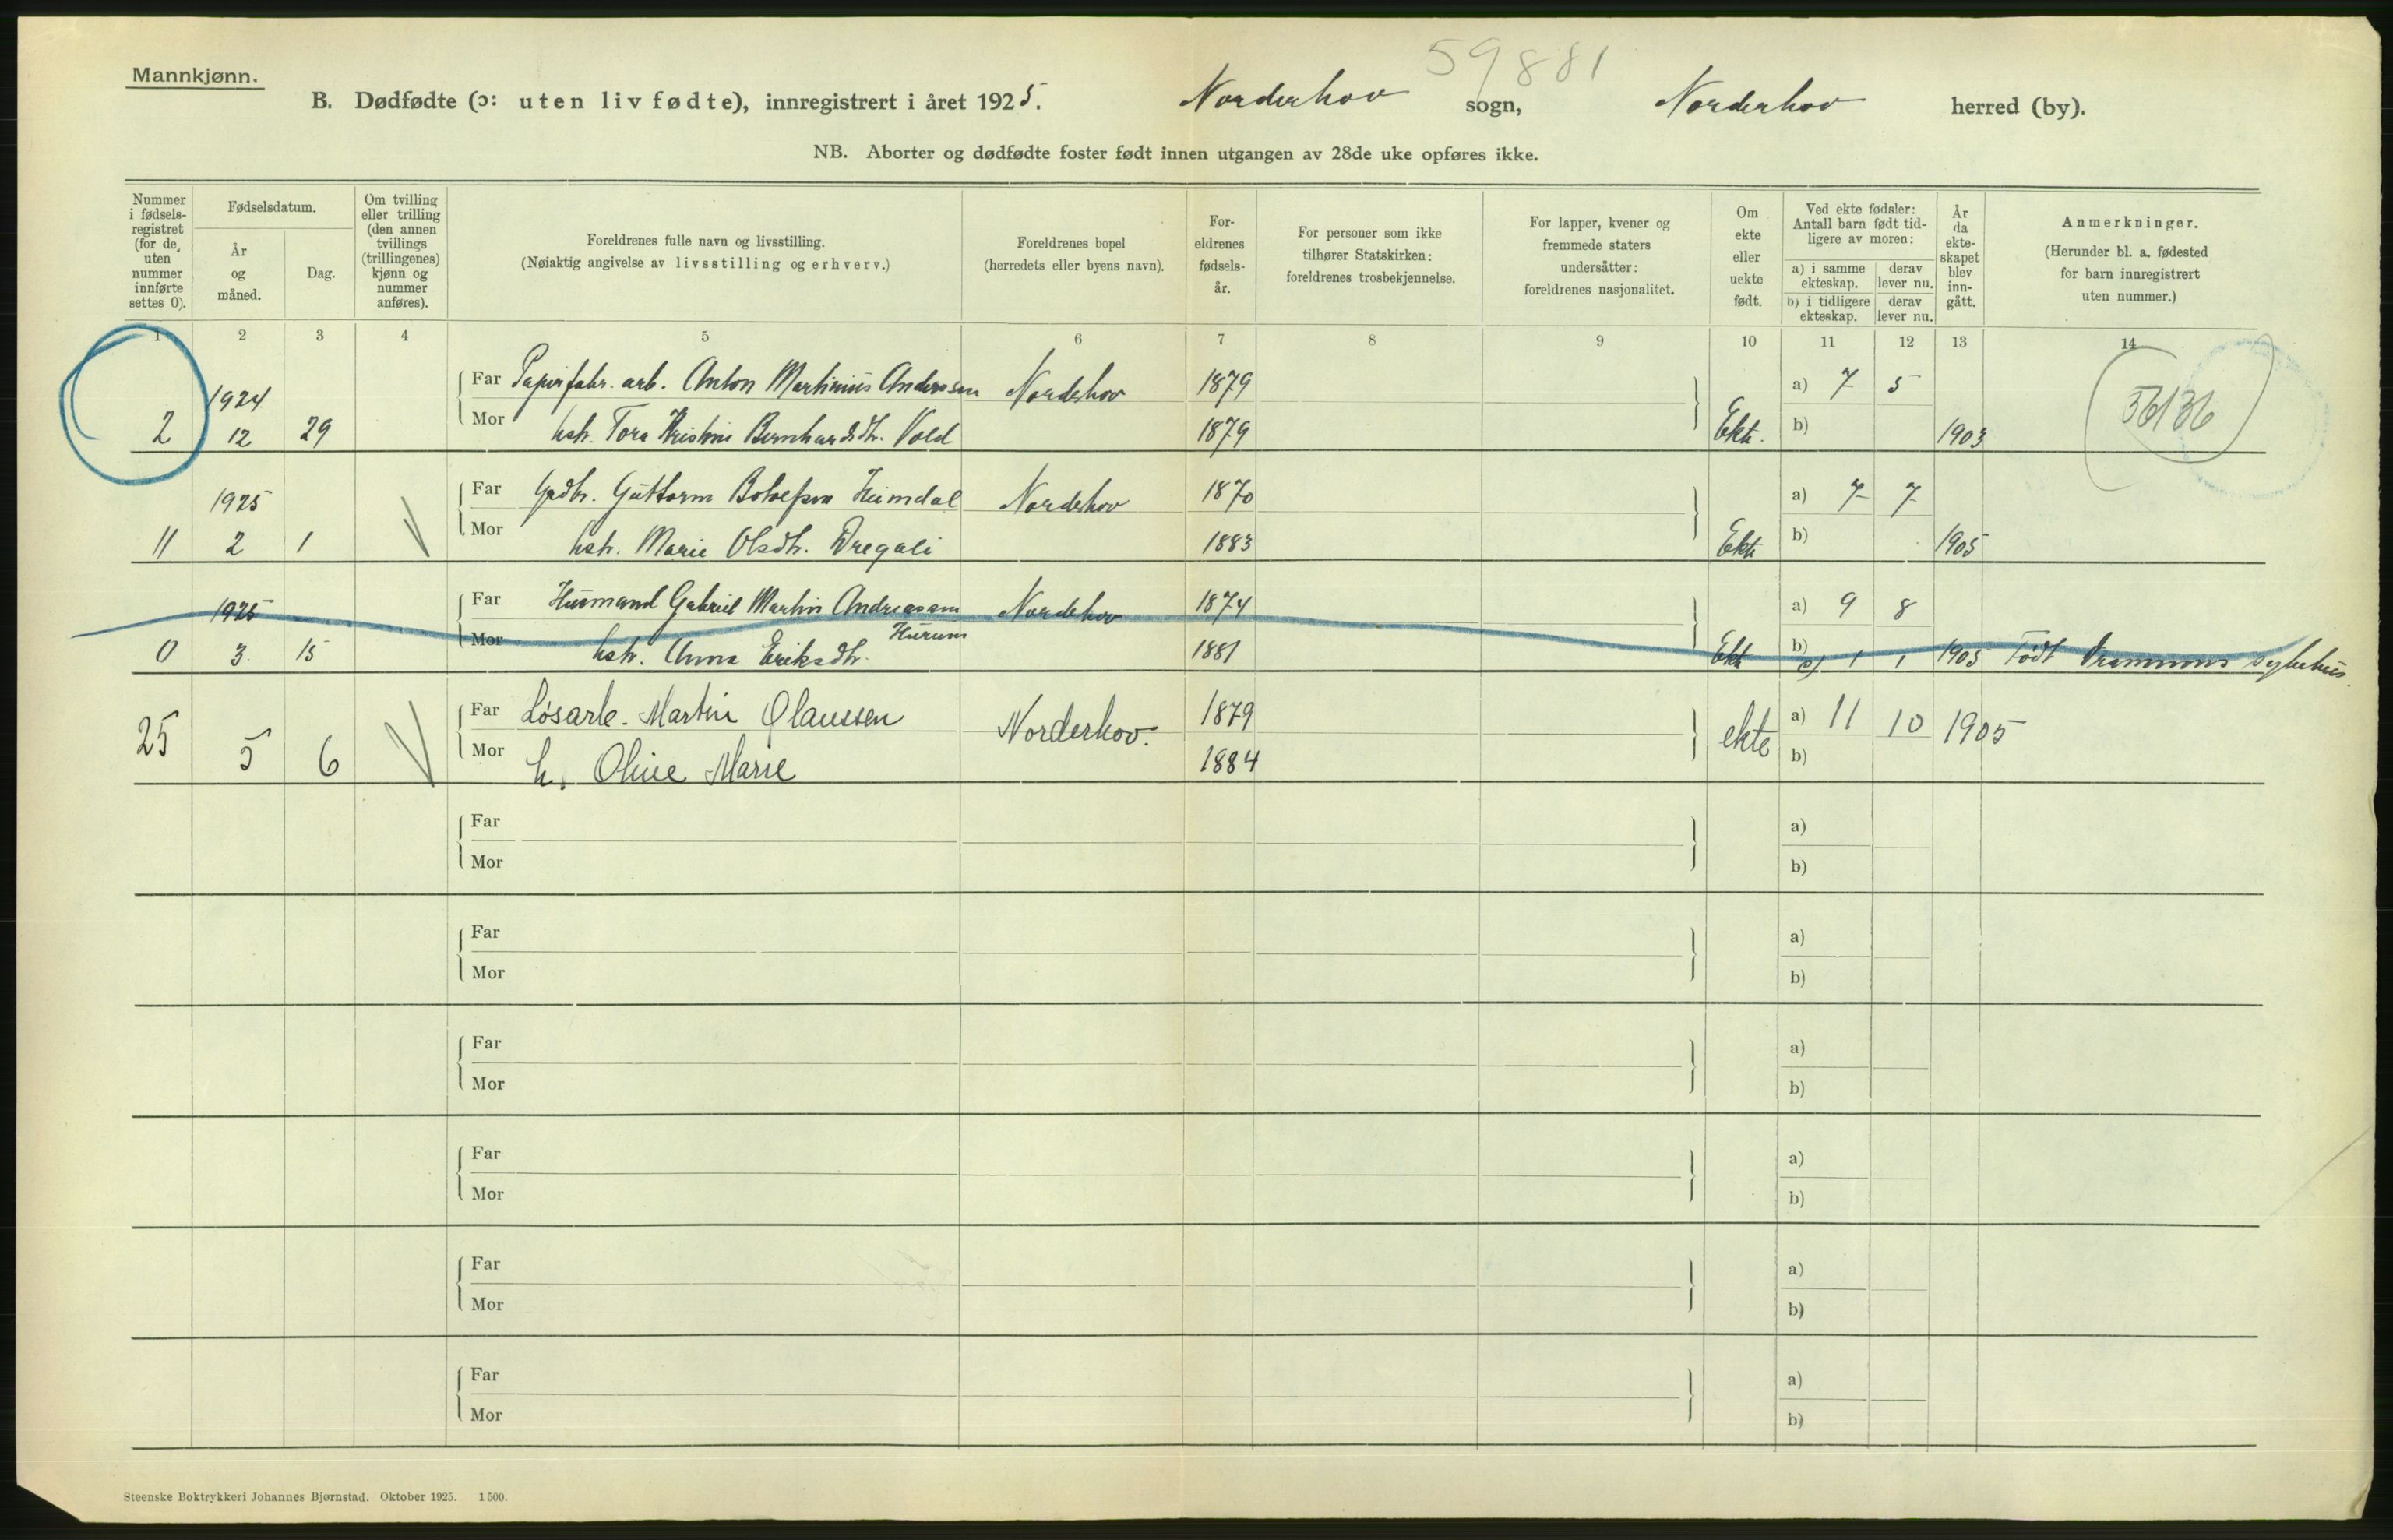 Mannkjønn.
59881
B. Dødfødte (ɔ: uten liv fødte), innregistrert i året 1925. Norderhov sogn, Norderhov herred (by).
NB. Aborter og dødfødte foster født innen utgangen av 28de uke opføres ikke.
Nummer i fødsels-registret (for de uten nummer innførte settes 0).
Fødselsdatum.
År og måned.
Dag.
Om tvilling eller trilling (den annen tvillings (trillingenes) kjønn og nummer anføres).
Foreldrenes fulle navn og livsstilling.
(Nøiaktig angivelse av livsstilling og erhverv.)
Foreldrenes bopel
(herredets eller byens navn).
For-eldrenes fødsels-år.
For personer som ikke tilhører Statskirken: foreldrenes trosbekjennelse.
For lapper, kvener og fremmede staters undersåtter: foreldrenes nasjonalitet.
Om ekte eller uekte født.
Ved ekte fødsler: Antall barn født tid-ligere av moren:
a) i samme ekteskap. derav lever nu.
b) i tidligere ekteskap. derav lever nu.
År da ekte-skapet blev inn-gått.
Anmerkninger.
(Herunder bl. a. fødested for barn innregistrert uten nummer.)
1 2 3 4 5 6 7 8 9 10 11 12 13 14
1924 Far Papirfabr. arb. Anton Martinius Anderssen Norderhov 1879 a) 7 5 56136
2 12 29 Mor hstr. Tora Kristine Bernhardsdtr. Vold 1879 Ekte. b) 1903
1925 Far Grdbr. Guttorm Botolfson Heimdal Norderhov 1870 a) 7 7
11 2 1 Mor hstr. Marie Olsdtr. Dregali 1883 Ekte b) 1905
1925 Far Husmand Gabriel Martin Andreassen Norderhov 1874 a) 9 8
0 3 15 Mor hstr. Anna Eriksdtr. Hurum 1881 Ekte b) 1 1 1905 Født Drammens sykehus.
25 5 6 Far Løsarb. Martin Olaussen Norderhov. 1879 ekte a) 11 10 1905
Mor h. Oline Marie 1884 b)
Far a)
Mor b)
Far a)
Mor b)
Far a)
Mor b)
Far a)
Mor b)
Far a)
Mor b)
Far a)
Mor b)
Steenske Boktrykkeri Johannes Bjørnstad. Oktober 1925. 1500.